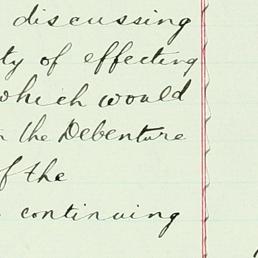 discussing
ty of effecting
which would
the Debenture
of the
continuing